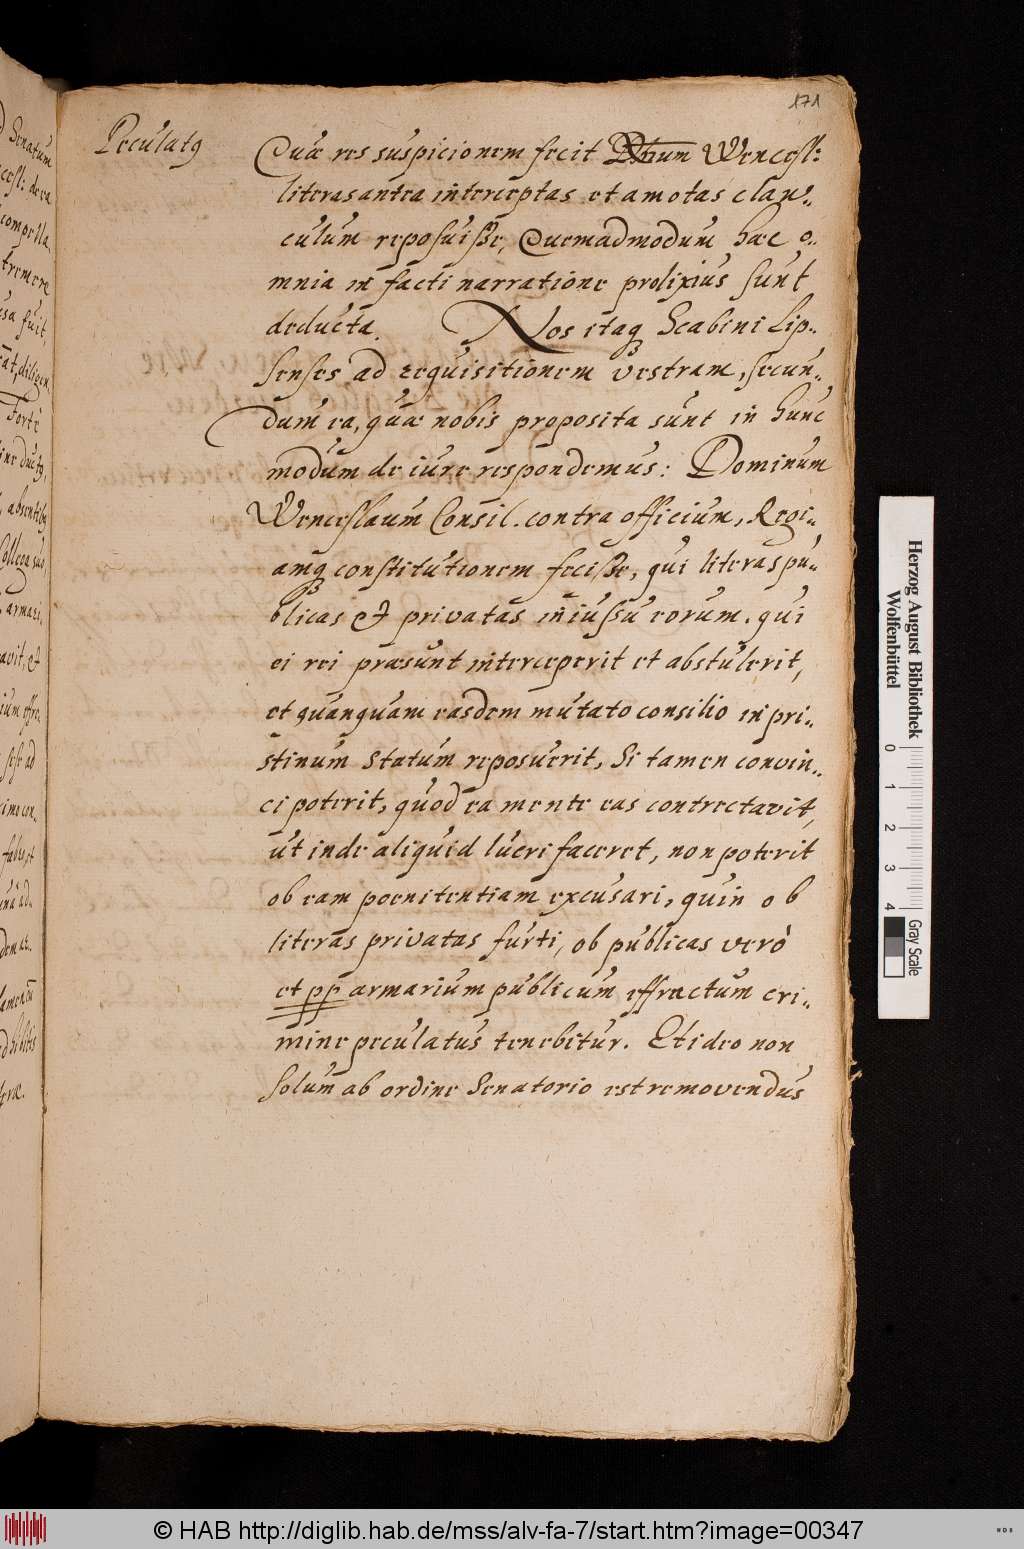 171
Peculatꝰ
Quæ res suspicionem fecit Dnum Wencesl:
literas antea interceptas et amotas clan„
culum reposuiße, Quemadmodum hæc o„
mnia in facti narratione prolixius sunt
deducta. Nos itaqꝫ Scabini Lip„
senses, ad requisitionem vestram, secun„
dum ea, quæ nobis proposita sunt in hunc
modum de iure respondemus: Dominum
Wenceslaum Consil. contra officium, Regi„
amqꝫ constitutionem feciße, qui literas pu„
blicas et privatas iniussu eorum. qui
ei rei præsunt interceperit et abstulerit,
et quanquam easdem mutato consilio in pri„
stinum statum reposuerit, Si tamen convin„
ci poterit, quod ea mente eas contrectavit,
ut inde aliquid lucri faceret, non poterit
ob eam poenitentiam excusari, quin ob
literas privatas furti, ob publicas verò
et pp armarium publicum effractum cri„
mine peculatus tenebitur. Et ideo non
solum ab ordine Senatorio est removendus
Senatum
compella„
temere
fuit,
diligen
Forte
absentibꝫ
armari„
avit, et
sest ad
falso, et
Herzog August Bibliothek
Wolfenbüttel
0 1 2 3 4
Gray Scale
© HAB http://diglib.hab.de/mss/alv-fa-7/start.htm?image=00347